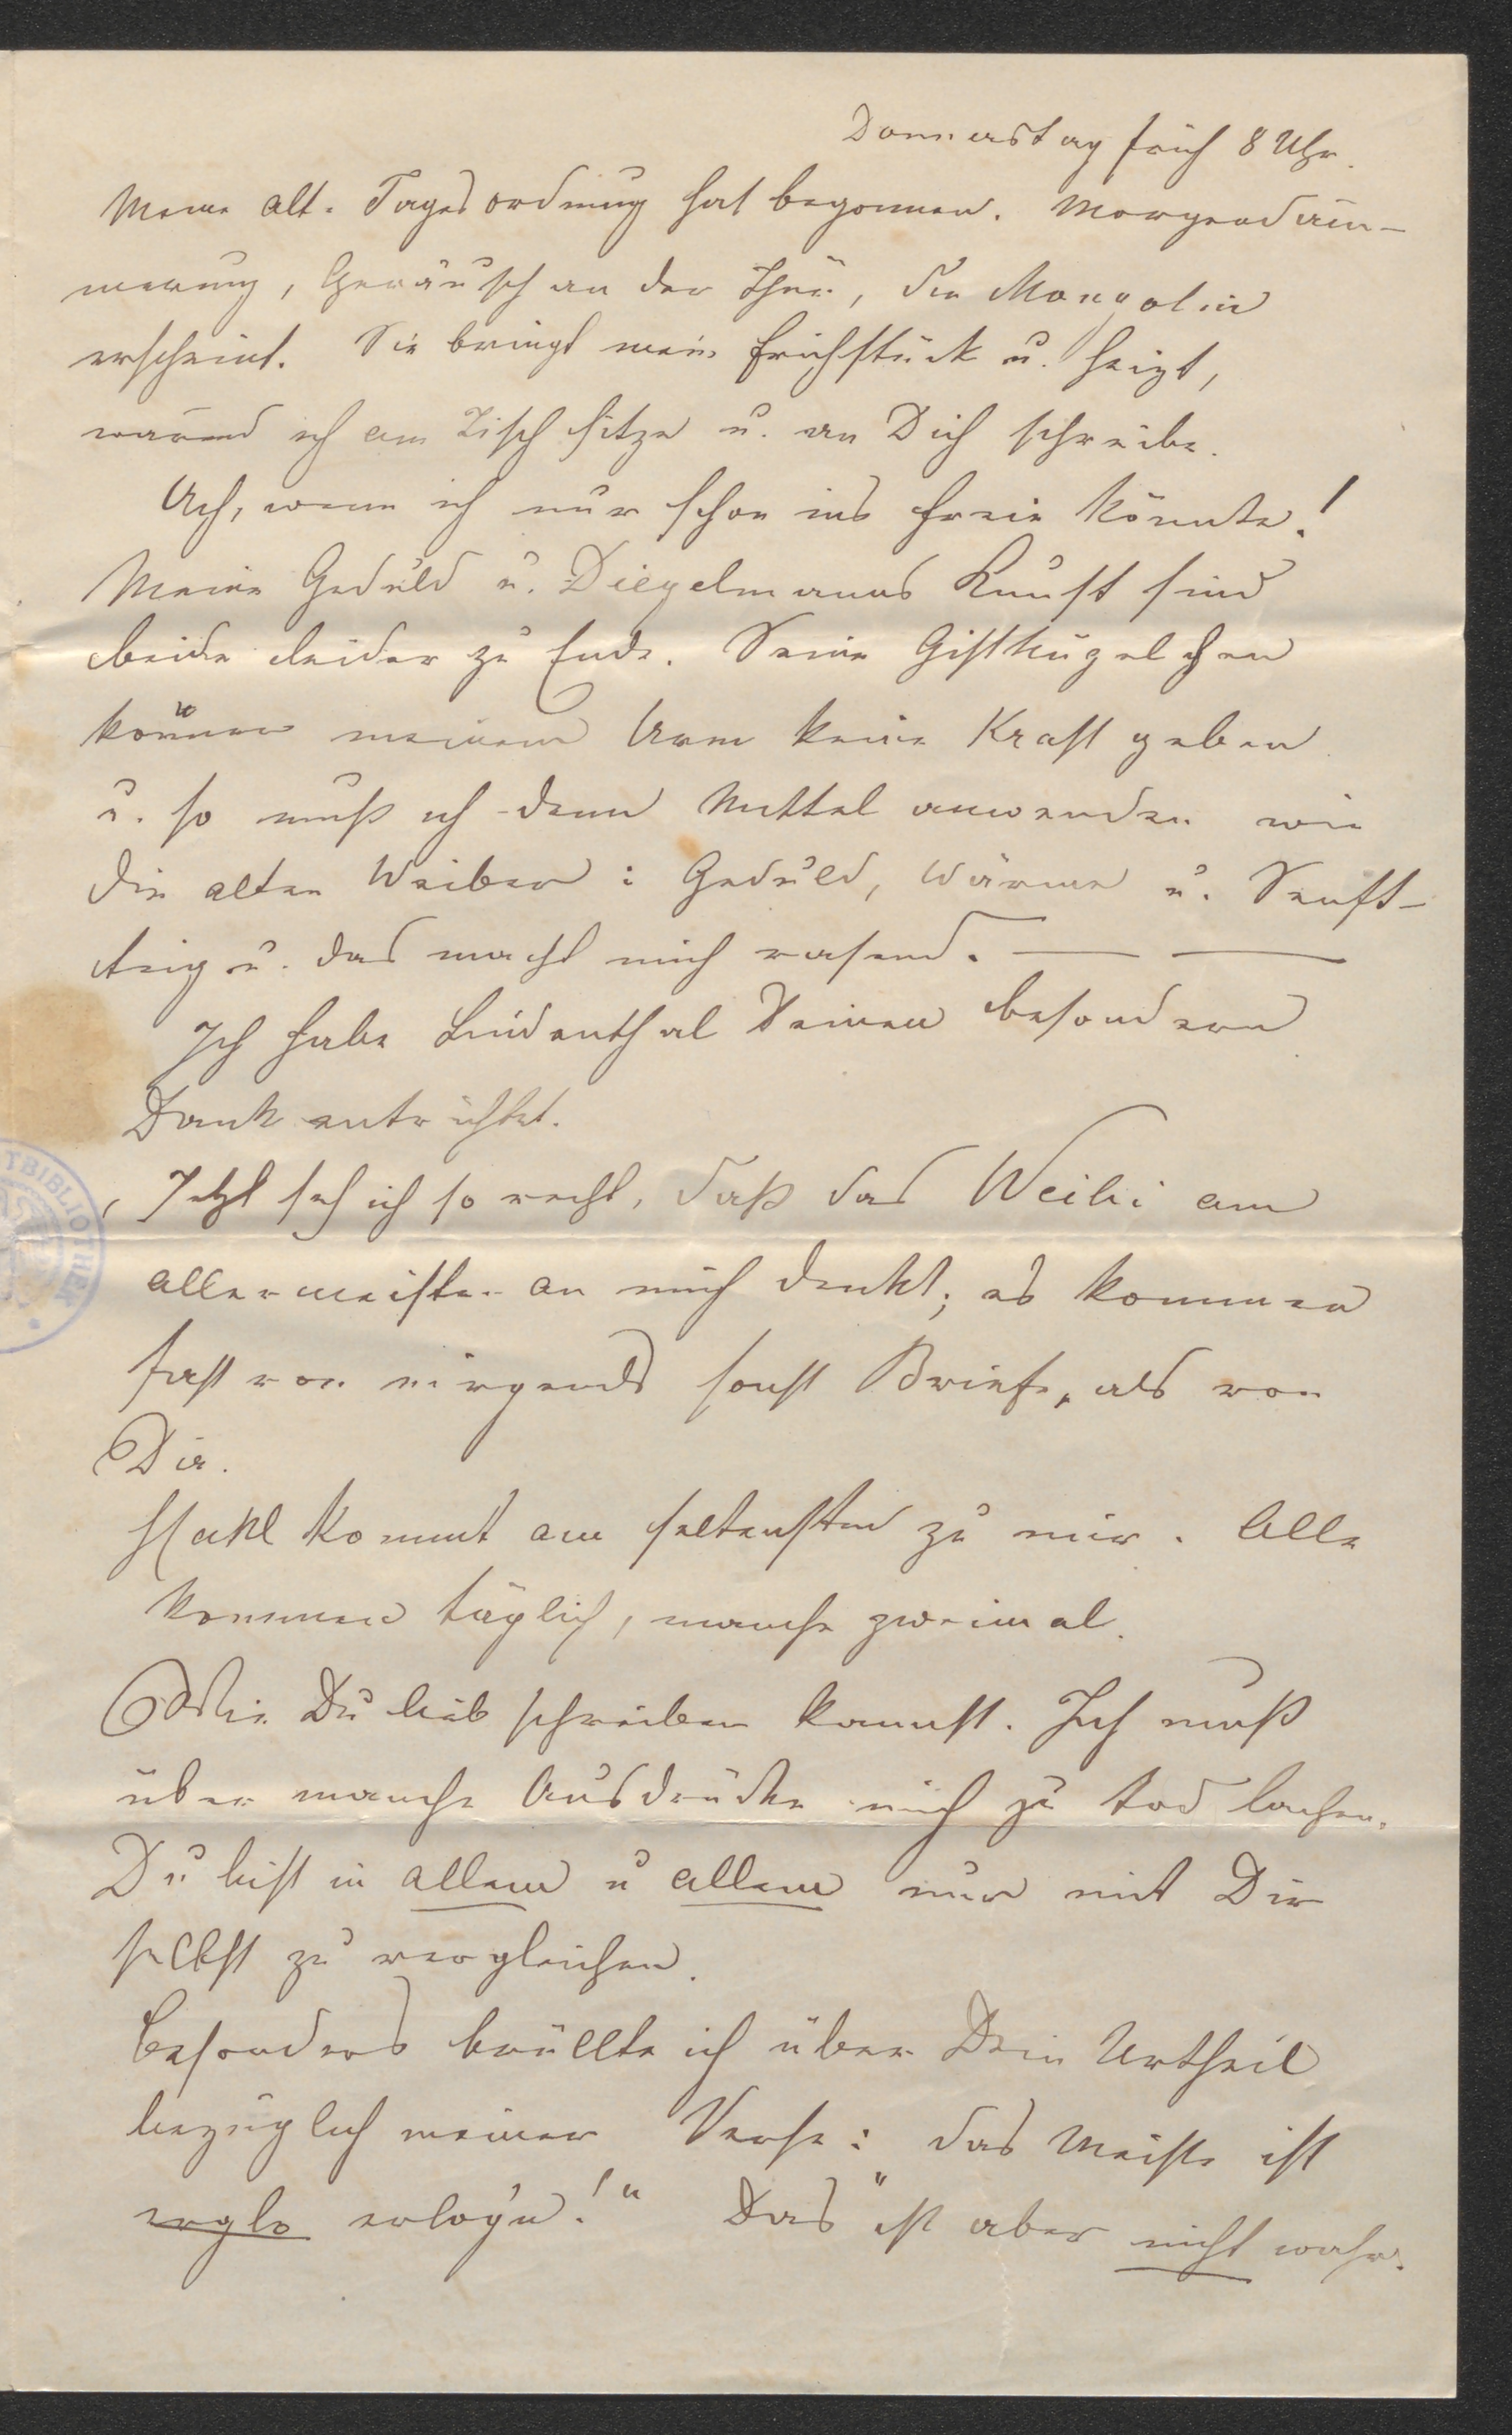 Donnerstag früh 8 Uhr.
Meine alte Tagesordnung hat begonnen. Morgendäm-
merung, Geräusch an der Thür, die Mongolin
erscheint. Sie bringt mein Frühstück u. heizt,
wärend ich am Tisch sitze u. an Dich schreibe.
Ach, wenn ich nur schon ins Freie könnte!
Meine Geduld u. Diegelmanns Kunst sind
beide leider zu Ende. Seine Giftkügelchen
können meinem Arm keine Kraft geben
u. so muß ich denn Mittel anwenden wie
die alten Weiber: Geduld, Wärme u. Senft-
teig u. das macht mich rasend. — —
Ich habe Lindenthal Deinen besondern
Dank entrichtet.
Jetzt seh ich so recht, daß das Weibi am
allermeisten an mich denkt; es kommen
fast von nirgends sonst Briefe, als von
Dir.
Hakl kommt am seltensten zu mir. Alle
kommen täglich, manche zweimal.
Wie Du lieb schreiben kannst. Ich muß
über manche Ausdrücke mich zu tod lachen.
Du bist in allem u allem nur mit Dir
selbst zu vergleichen.
Besonders brüllte ich über Dein Urtheil
bezüglich meiner Verse: das Meiste ist
erglo erlog'n!" Das ist aber nicht wahr.
TBIBLIOTHEK